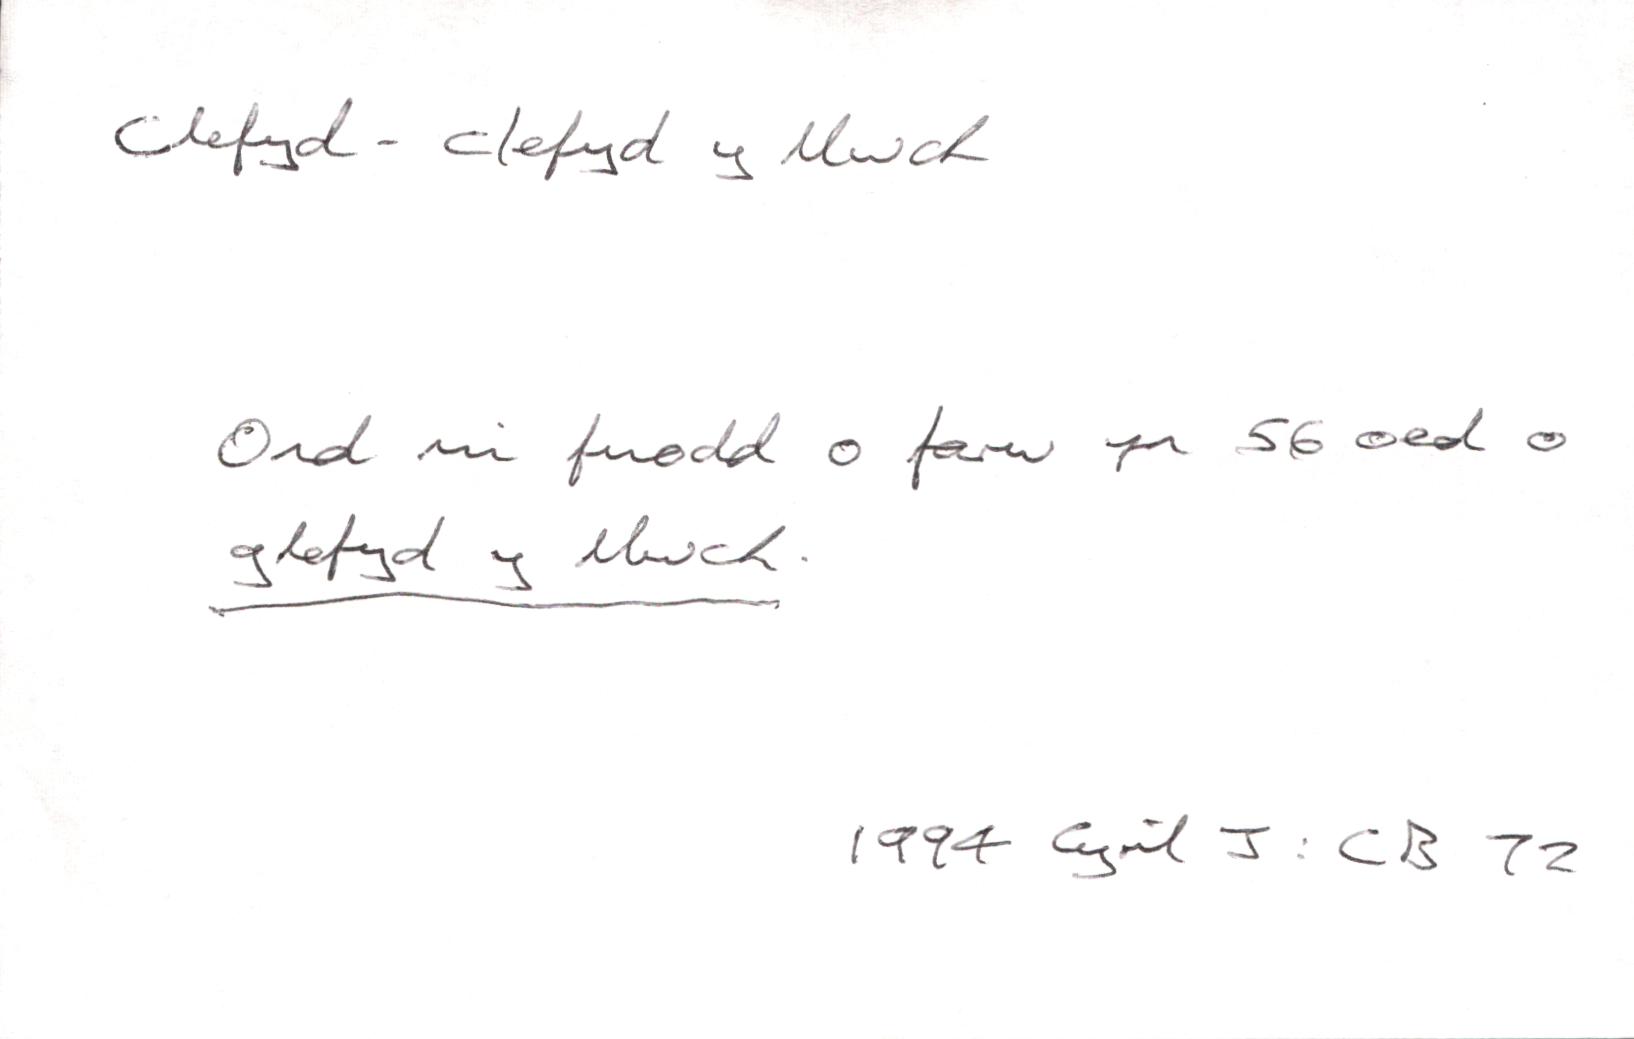 Clefyd - clefyd y llwch
Ond mi fuodd o farw yn 56 oed o
glefyd y llwch.
1994 Cyril J : CB 72